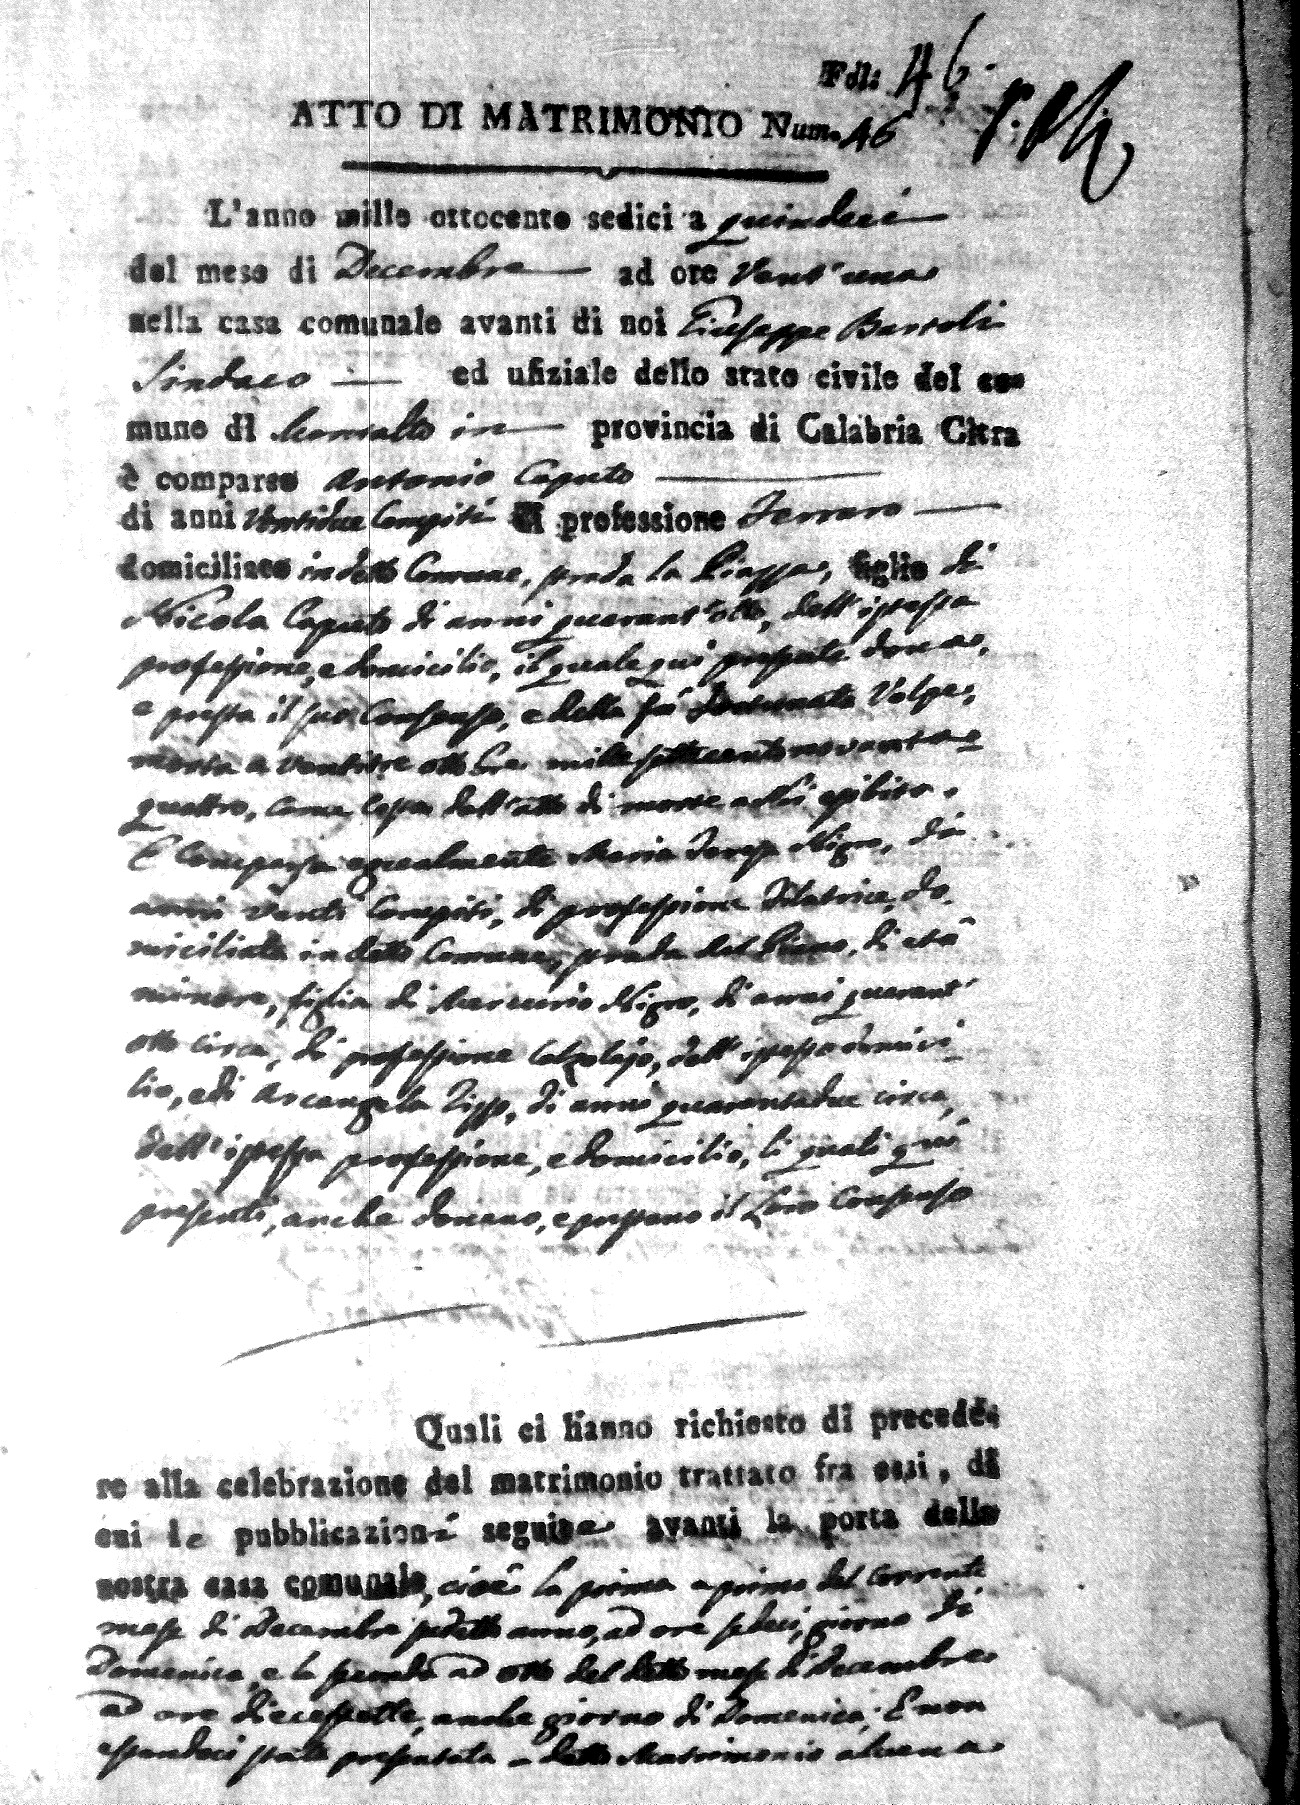 Fol: 46.
ATTO DI MATRIMONIO Num. 46
L'anno mille ottocento sedici a quindeci
del mese di Decembre ad ore Vent'una
nella casa comunale avanti di noi Giuseppe Bartoli
Sindaco ed ufiziale dello stato civile del co-
mune di Montalto in provincia di Calabria Citra
è comparso Antonio Caputo
di anni Ventidue Compiti di professione Ferraro
domiciliato in detto Comune, strada la Piazza, figlio di
Nicola Caputo di anni quarant'otto, dell'istessa
professione, e domicilio, il quale qui presente dona,
e presta il suo Consenso, e della fù Fortunata Volpe,
morta a Ventitre ottobre mille settecento novanta=
quattro, come Copia dell'atto di morte a Noi esibita.
E Comparsa egualmente Maria Teresa Nigro, di
anni Venti Compiti, di professione Filatrice, do-
miciliata in detto Comune, strada del Piano, di età
minore, figlia di Mercurio Nigro, di anni quarant'
otto circa, di professione Calzolajo, dell'istesso domici-
lio, e di Arcangela Zippo, di anni quarantadue circa,
dell'istessa professione, e domicilio, li quali quì
presenti, anche donano, e prestano il Loro Consenso
Quali ci hanno richiesto di procede-
re alla celebrazione del matrimonio trattato fra essi, di
cui le pubblicazioni seguite avanti la porta della
nostra casa comunale, cioè la prima a primo del corrente
mese di Decembre sudetto anno, ad ore sedeci, giorno di
Domenica, e la seconda ad otto del detto mese di Decembre
ad ore diecessette, anche giorno di Domenica; E non
essendoci stata presentata a detto Matrimonio alcuna